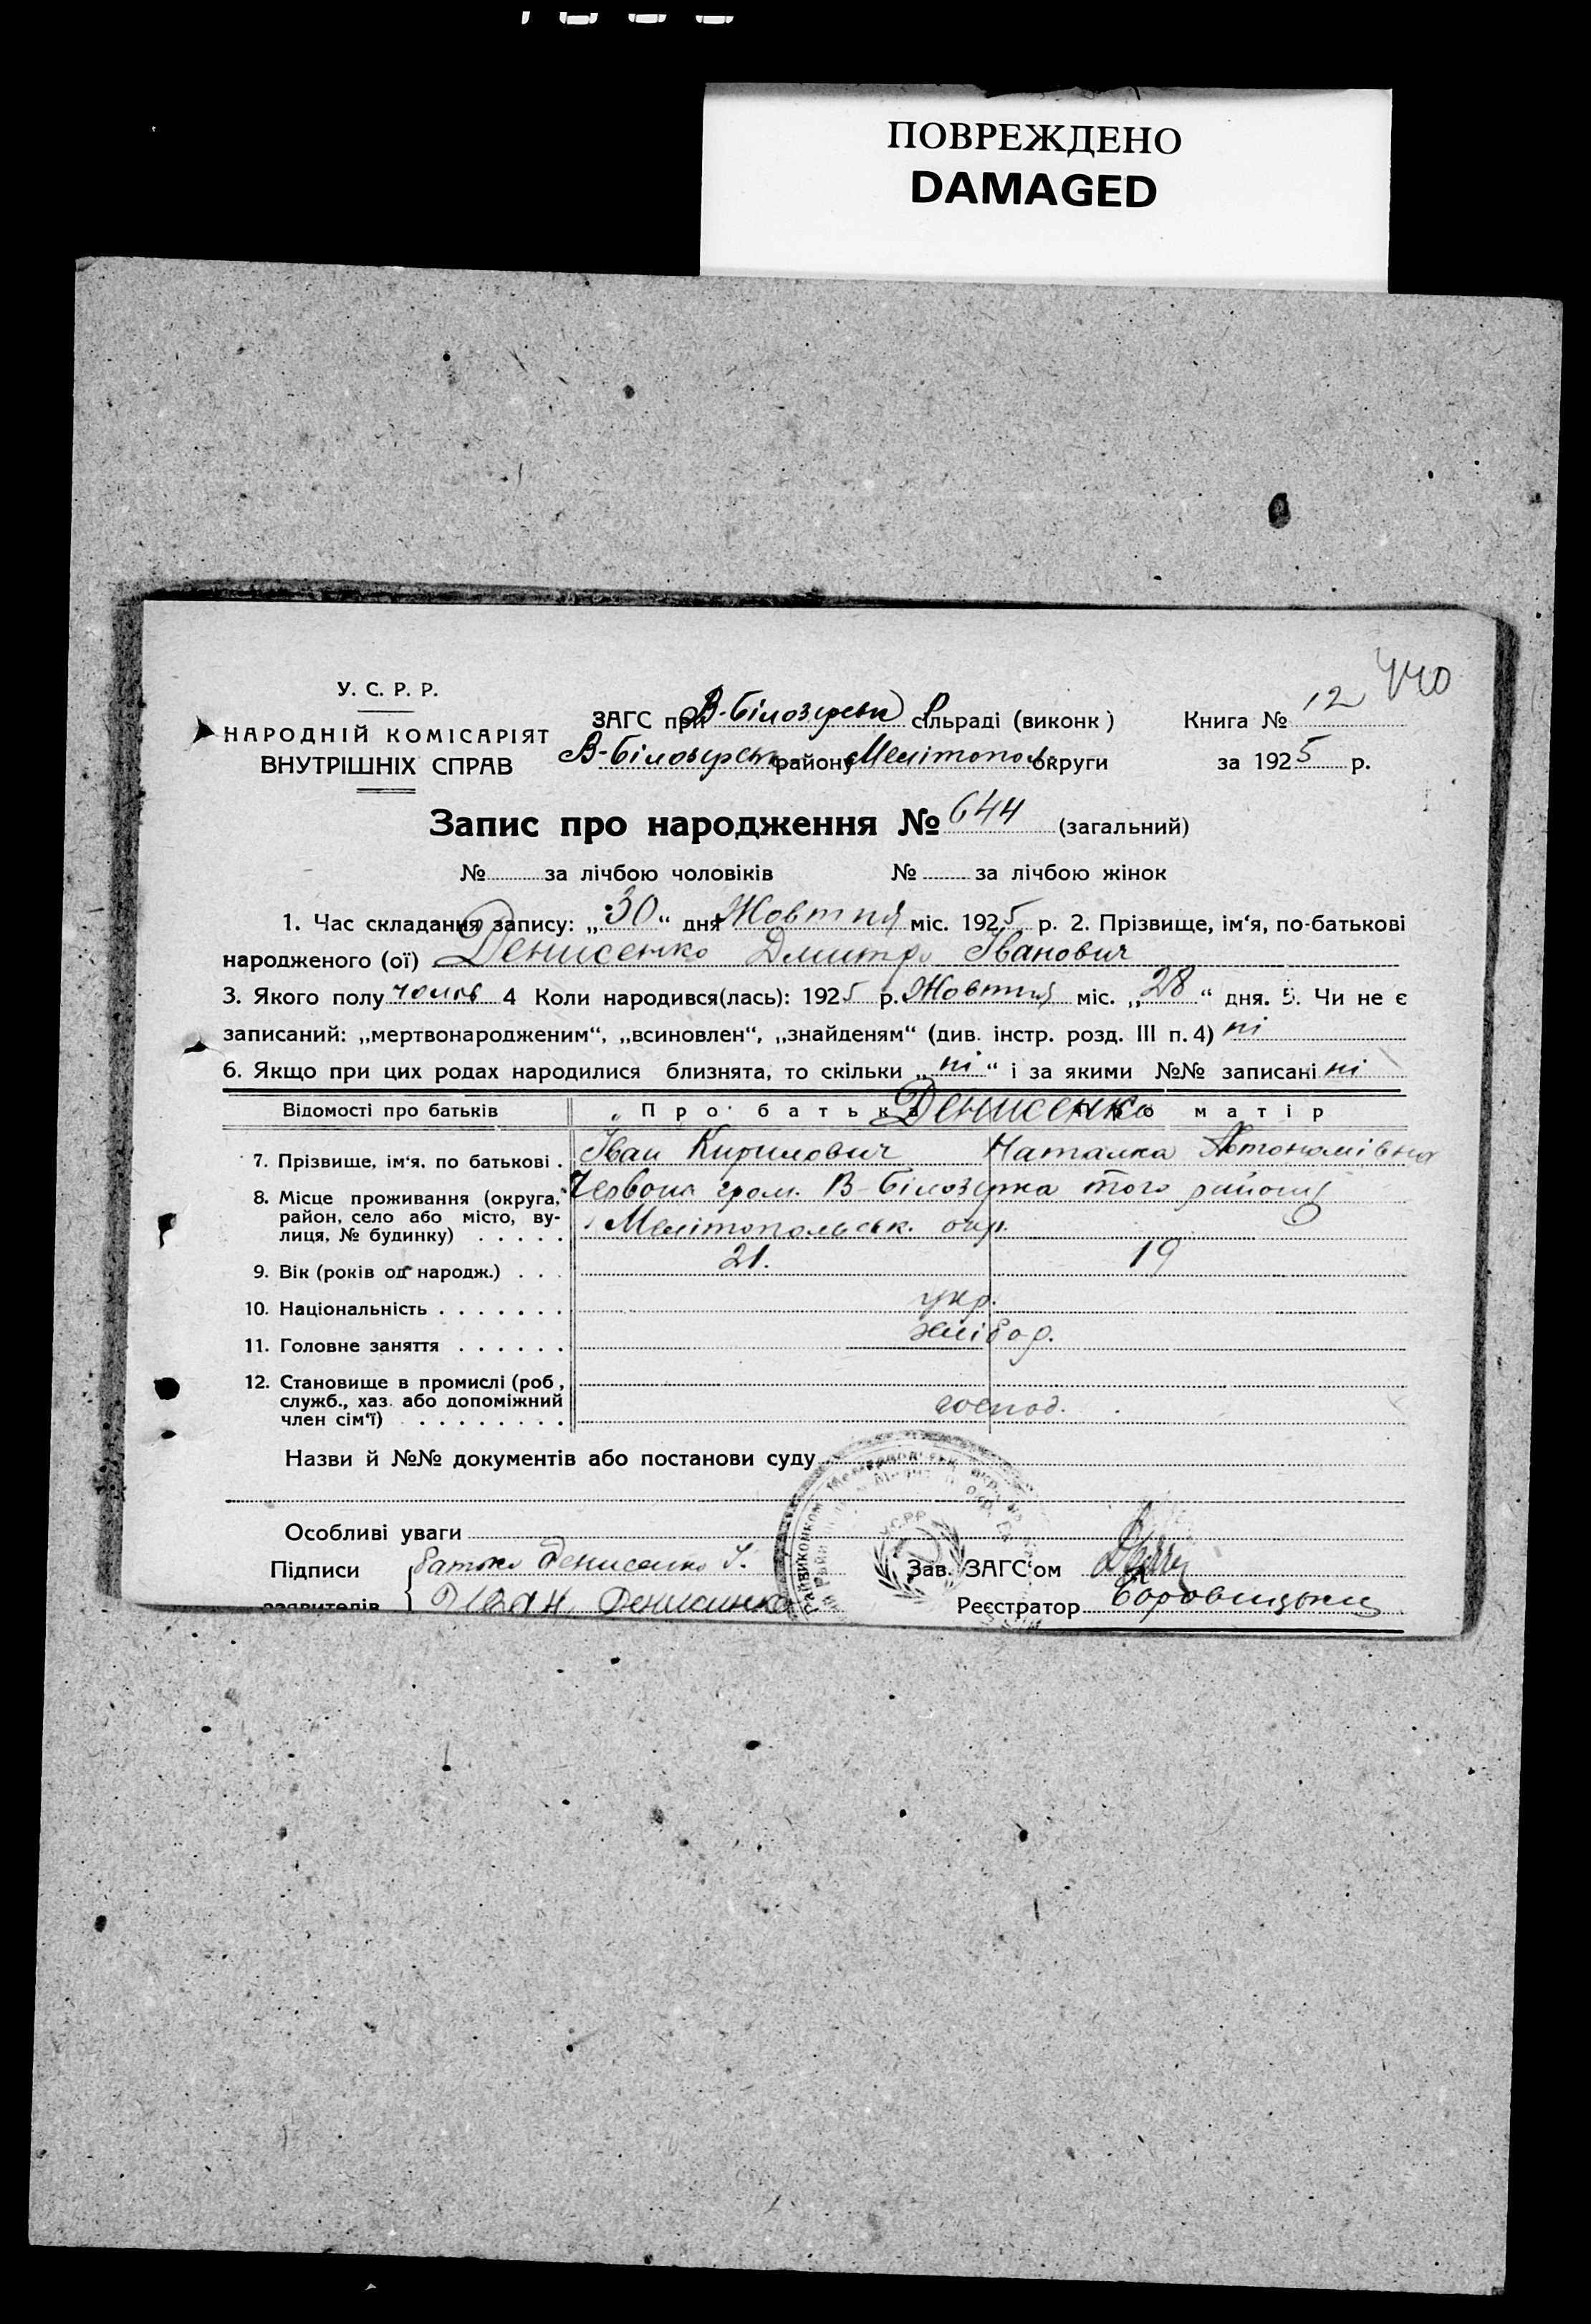 ПОВРЕЖДЕНО
DAMAGED
440
У. С. Р. Р.
НАРОДНІЙ КОМІСАРІЯТ
ВНУТРІШНІХ СПРАВ
ЗАГС при В-Білозерськ Р сільраді (виконк) Книга № 12
В-Білозерськ району Мелітопол. округи за 1925 р.
Запис про народження № 644 (загальний)
№ за лічбою чоловіків № за лічбою жінок
1. Час складання запису: „30“ дня Жовтня міс. 1925 р. 2. Прізвище, ім‘я, по-батькові
народженого (ої) Денисенко Дмитро Іванович
3. Якого полу чолов 4 Коли народився(лась): 1925 р. Жовтня міс. „28“ дня. 5. Чи не є
записаний: „мертвонародженим“, „всиновлен“, „знайденям“ (див. інстр. розд. III п. 4) ні
6. Якщо при цих родах народилися близнята, то скільки „ні“ і за якими №№ записані ні
Відомості про батьків Про батька Про матір
Денисенко
7. Прізвище, ім‘я, по батькові . Іван Кирилович Наталка Автономівна
8. Місце проживання (округа, район, село або місто, вулиця, № будинку) . . . . . Червона гром. В-Білозерка того району
Мелітопольськ. окр.
9. Вік (років од народж.) . . . 21. 19
10. Національність . . . . . . . укр.
11. Головне заняття . . . . . . хлібор.
12. Становище в промислі (роб., служб., хаз. або допоміжний член сім‘ї) . . . . . . . . господ.
Назви й №№ документів або постанови суду
Особливі уваги
Підписи батько Денисенко І. Зав. ЗАГС‘ом
заявителів Іван Денисенко Реєстратор
УСРР